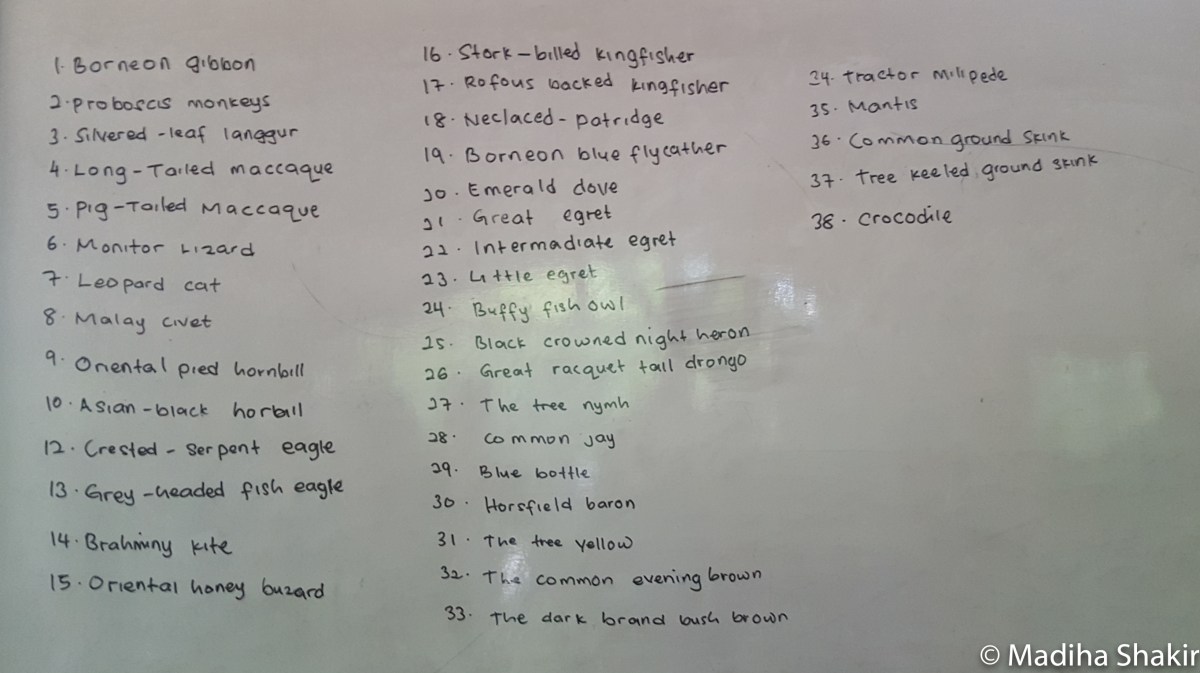 1. Borneon gibbon
2. proboscis monkeys
3. Silvered-leaf langgur
4. Long-Tailed maccaque
5. Pig-Tailed Maccaque
6. Monitor Lizard
7. Leopard cat
8. Malay civet
9. Oriental pied hornbill
10. Asian-black horbill
12. Crested-serpent eagle
13. Grey-headed fish eagle
14. Brahminy kite
15. Oriental honey buzard
16. Stork-billed kingfisher
17. Rofous backed kingfisher
18. Neclaced-patridge
19. Borneon blue flycather
20. Emerald dove
21. Great egret
22. Intermadiate egret
23. Little egret
24. Buffy fish owl
25. Black crowned night heron
26. Great racquet tail drongo
27. The tree nymh
28. common jay
29. Blue bottle
30. Horsfield baron
31. The tree yellow
32. The common evening brown
33. The dark brand bush brown
34. tractor milipede
35. Mantis
36. Common ground skink
37. tree keeled ground skink
38. crocodile
© Madiha Shakir